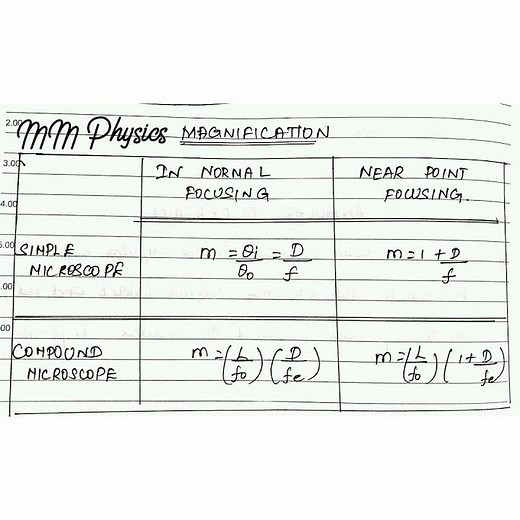 2.00
MM Physics MAGNIFICATION
3.00
IN NORMAL
FOCUSING
NEAR POINT
FOCUSING.
4.00
5.00
SIMPLE
MICROSCOPE
m = θi/θo = D/f
m = 1 + D/f
.00
00
COMPOUND
MICROSCOPE
m = (L/fo) (D/fe)
m = (L/fo) (1 + D/fe)